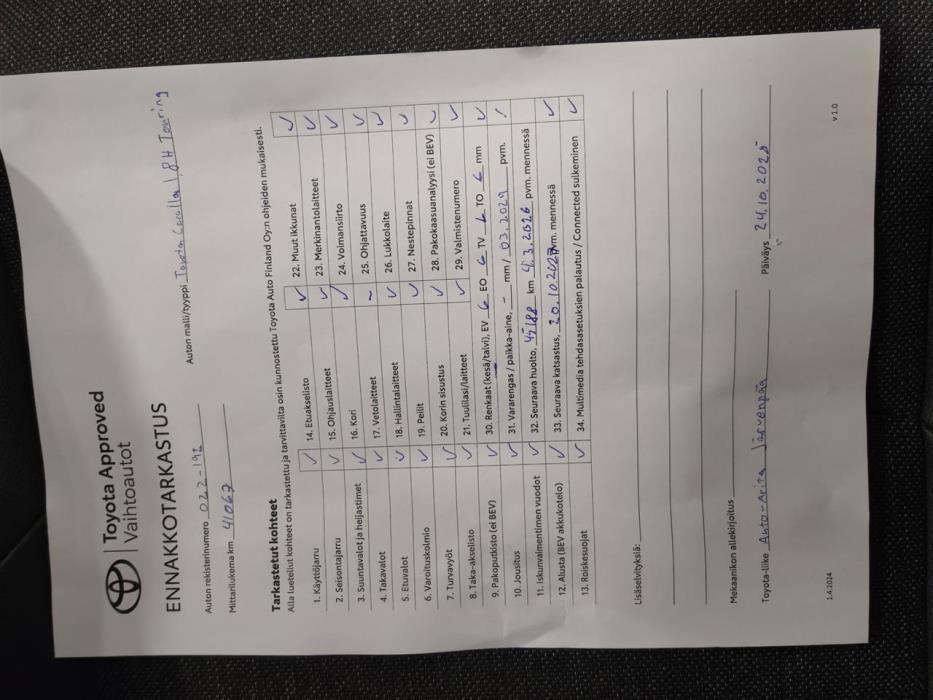 Toyota Approved
Vaihtoautot
ENNAKKOTARKASTUS
Auton rekisterinumero 022-192 Auton malli/tyyppi Toyota Corolla 1,8H Touring
Mittarilukema km 41067
Tarkastetut kohteet
Alla luetellut kohteet on tarkastettu ja tarvittavilta osin kunnostettu Toyota Auto Finland Oy:n ohjeiden mukaisesti.
1. Käyttöjarru ✓ 14. Etuakselisto ✓ 22. Muut ikkunat ✓
2. Seisontajarru ✓ 15. Ohjauslaitteet ✓ 23. Merkinantolaitteet ✓
3. Suuntavalot ja heijastimet ✓ 16. Kori ✓ 24. Voimansiirto ✓
4. Takavalot ✓ 17. Vetolaitteet ~ 25. Ohjattavuus ✓
5. Etuvalot ✓ 18. Hallintalaitteet ✓ 26. Lukkolaite ✓
6. Varoituskolmio ✓ 19. Peilit ✓ 27. Nestepinnat ✓
7. Turvavyöt ✓ 20. Korin sisustus ✓ 28. Pakokaasuanalyysi (ei BEV) ✓
8. Taka-akselisto ✓ 21. Tuulilasi/laitteet ✓ 29. Valmistenumero ✓
9. Pakoputkisto (ei BEV) ✓ 30. Renkaat (kesä/talvi), EV 6 EO 6 TV 6 TO 6 mm ✓
10. Jousitus ✓ 31. Vararengas / paikka-aine, - mm / 03.2029 pvm. /
11. Iskunvaimentimen vuodot ✓ 32. Seuraava huolto, km 4.3.2026 pvm. mennessä
12. Alusta (BEV akkukotelo) ✓ 33. Seuraava katsastus, 20.10.2027 pvm. mennessä ✓
13. Roiskesuojat ✓ 34. Multimedia tehdasasetuksien palautus / Connected sulkeminen ✓
Lisäselvityksiä:
Mekaanikon allekirjoitus
Toyota-liike Auto-Arita Järvenpää Päiväys 24.10.2025
1.4.2024 v 1.0